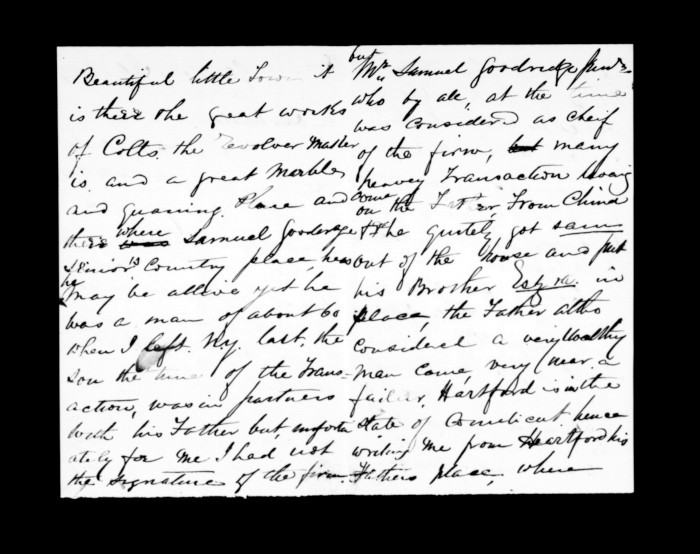 Beautiful little Town it
is there the great works
of Colts, the revolver Master
is, and a great Marble
and Place and
there was where Samuel Goodridge
senior's Country place, has
he may be allive yet he
was a man of about 60
when I left N.Y. last, the
son the time of the Trans-
action, was in partners
with his Father but, unfortu
ately for me I had not
the signature of the firm.
but Mr Samuel Goodridge Junr
who by all, at the time
was considered as cheif
of the firm, but many
heavey Transaction
come on the Father, From China
& he quitely got sam
out of the house and put
his Brother Eszra. in
place, the Father altho
considerd a very wealthy
man came very near a
failer, Hartford is in the
State of Conniticut hence
writing me from Heartford his
Fathers place, where